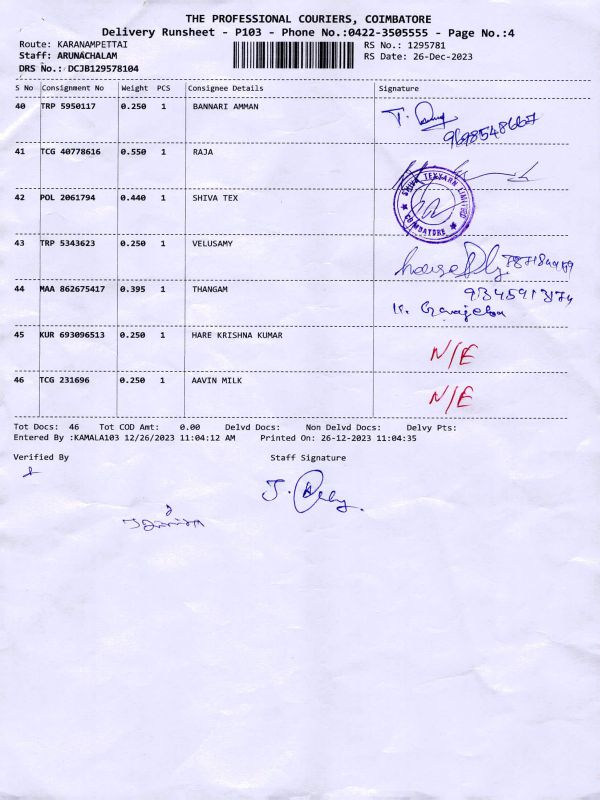 THE PROFESSIONAL COURIERS, COIMBATORE
Delivery Runsheet - P103 - Phone No.:0422-3505555 - Page No.:4
Route: KARANAMPETTAI RS No.: 1295781
Staff: ARUNACHALAM RS Date: 26-Dec-2023
DRS No.: DCJB129578104
S No Consignment No Weight PCS Consignee Details Signature
40 TRP 5950117 0.250 1 BANNARI AMMAN
9698548667
41 TCG 40778616 0.550 1 RAJA
42 POL 2061794 0.440 1 SHIVA TEX
SHIVA TEXYARN LIMITED
COIMBATORE
43 TRP 5343623 0.250 1 VELUSAMY
44 MAA 862675417 0.395 1 THANGAM
45 KUR 693096513 0.250 1 HARE KRISHNA KUMAR N/E
46 TCG 231696 0.250 1 AAVIN MILK N/E
Tot Docs: 46 Tot COD Amt: 0.00 Delvd Docs: Non Delvd Docs: Delvy Pts:
Entered By :KAMALA103 12/26/2023 11:04:12 AM Printed On: 26-12-2023 11:04:35
Verified By Staff Signature